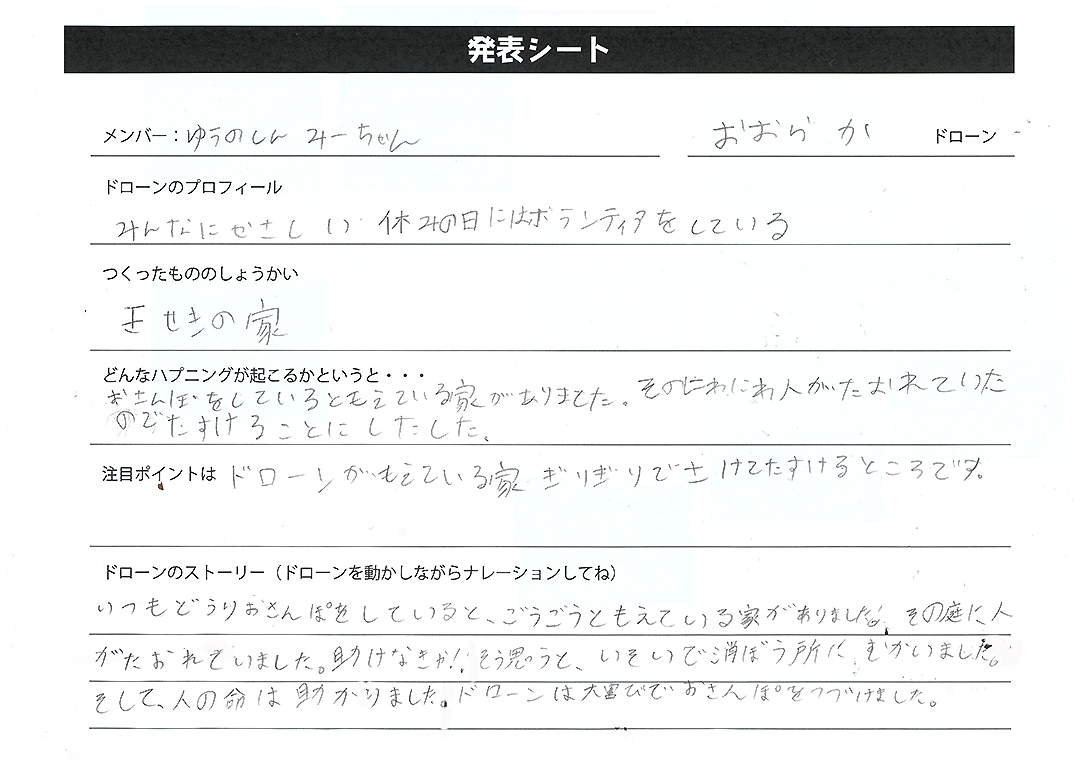 発表シート
メンバー：ゆうのしん みーちゃん おおらか ドローン
ドローンのプロフィール
みんなにやさしい 休みの日にはボランティアをしている
つくったもののしょうかい
せきの家
どんなハプニングが起こるかというと・・・
おさんぽをしているともえている家がありました。そのにわにわ人がたおれていた
のでたすけることにしたした。
注目ポイントは ドローンがもえている家ぎりぎりでさけてたすけるところです。
ドローンのストーリー（ドローンを動かしながらナレーションしてね）
いつもどうりおさんぽをしていると、ごうごうともえている家がありました！その庭に人
がたおれていました。助けなきゃ！そう思うと、いそいで消ぼう所に、むかいました。
そして、人の命は助かりました。ドローンは大喜びでおさんぽをつづけました。